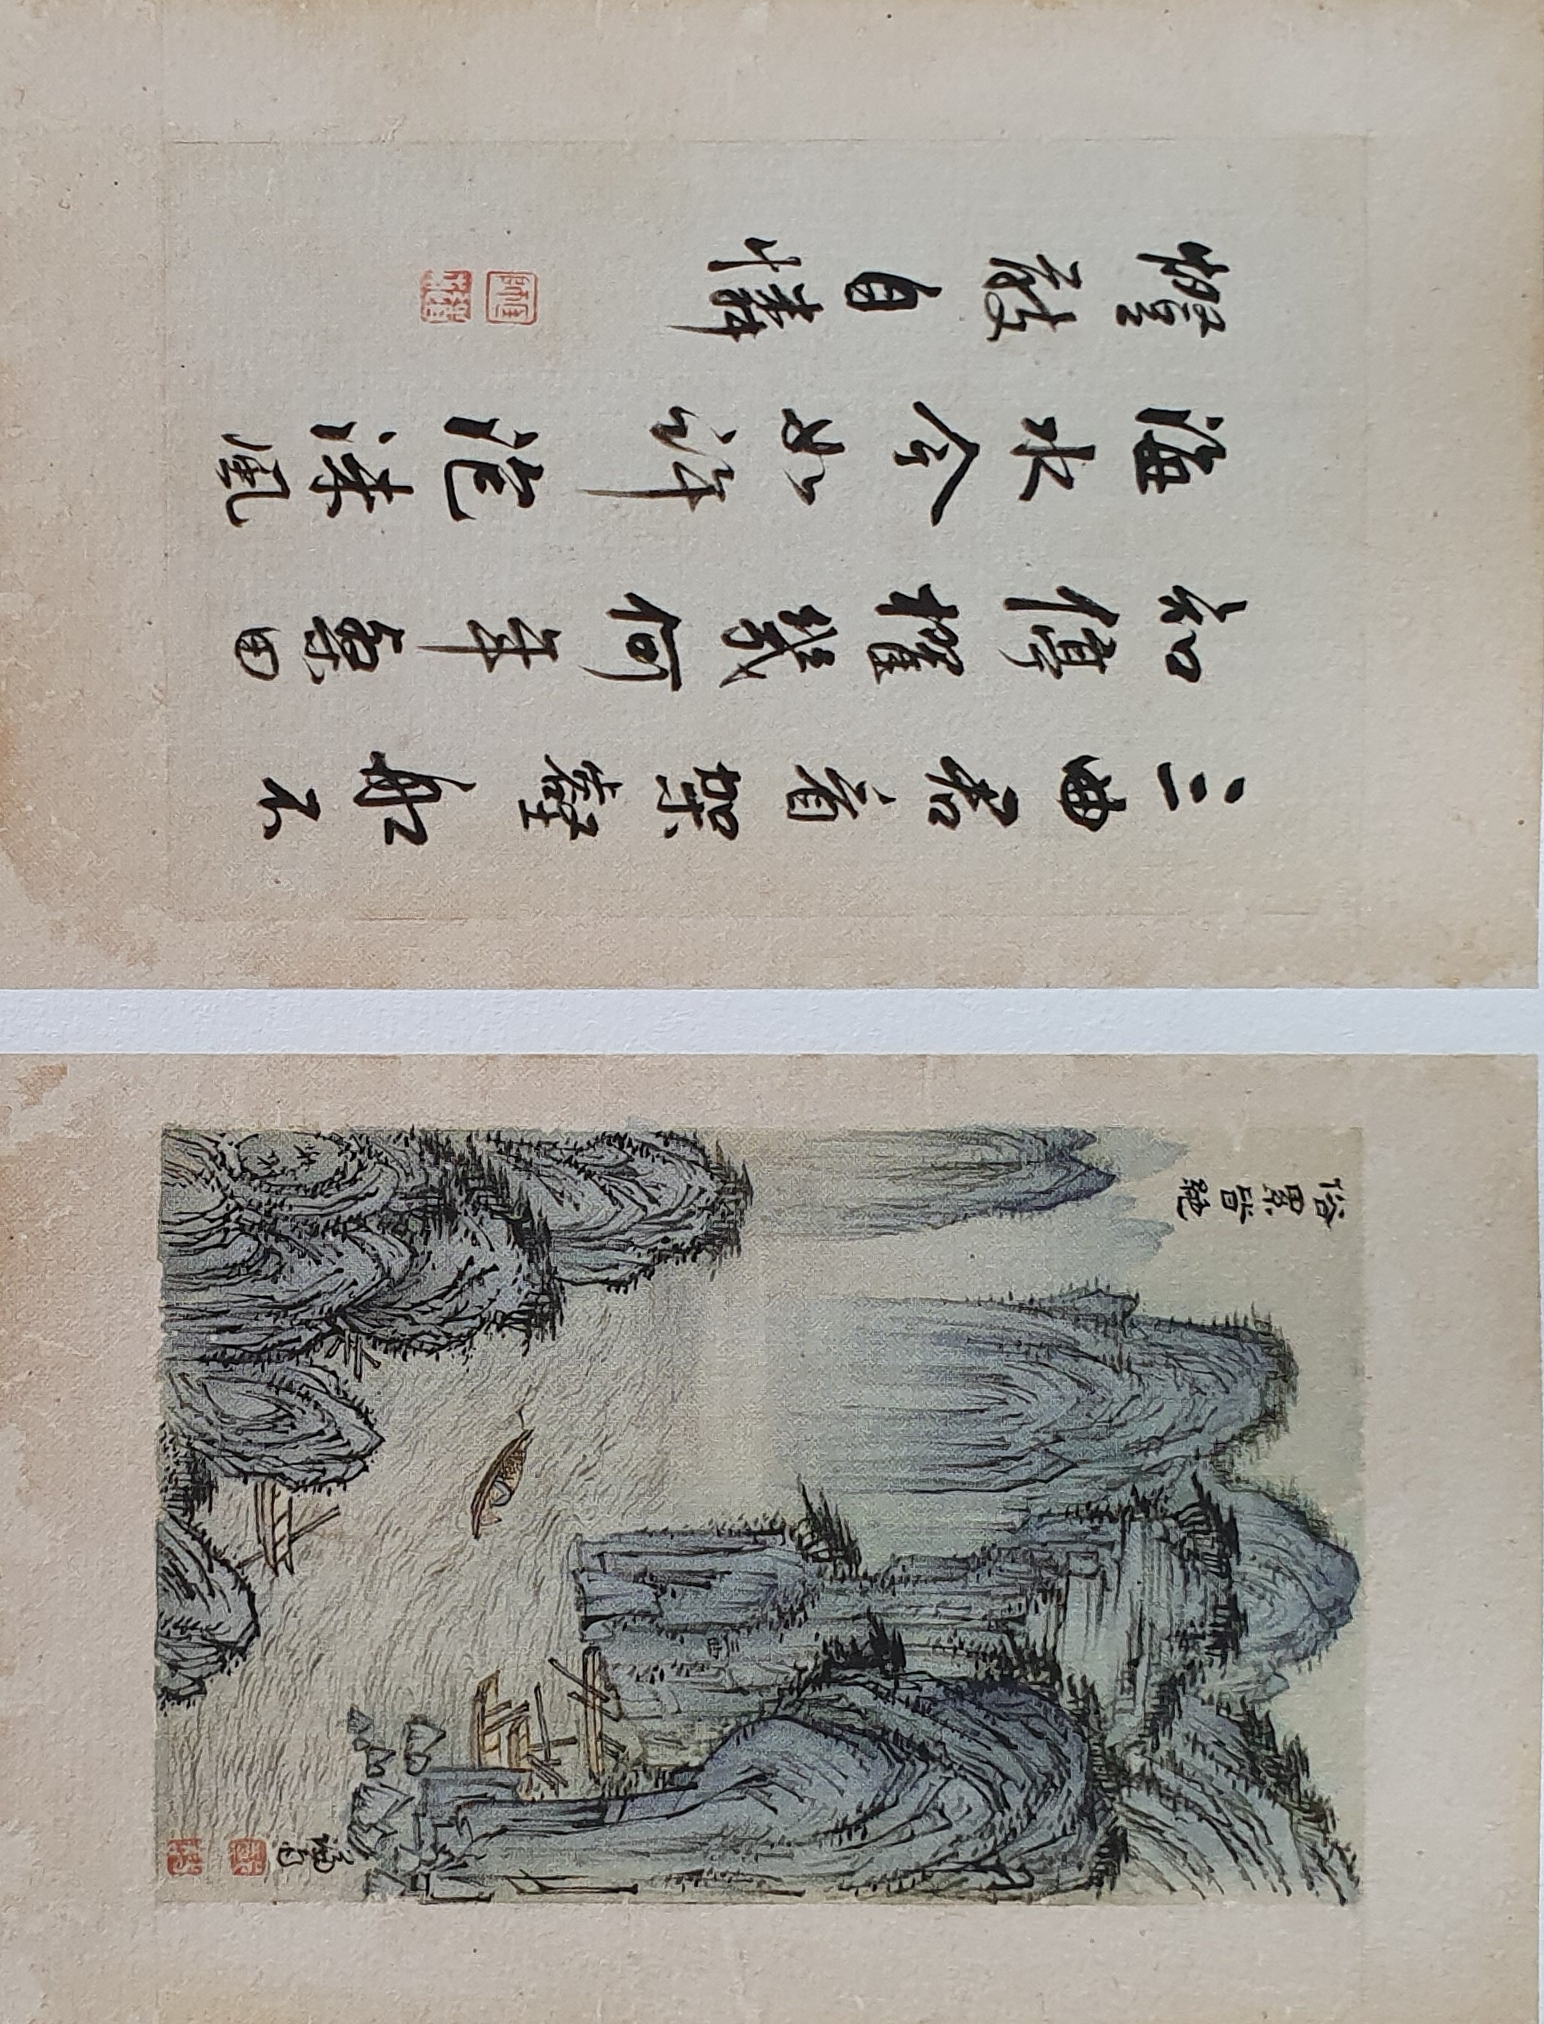 三曲君看架壑船不
知停櫂幾何年桑田
海水今如許泡沫風
燈敢自憐
俗累皆絶